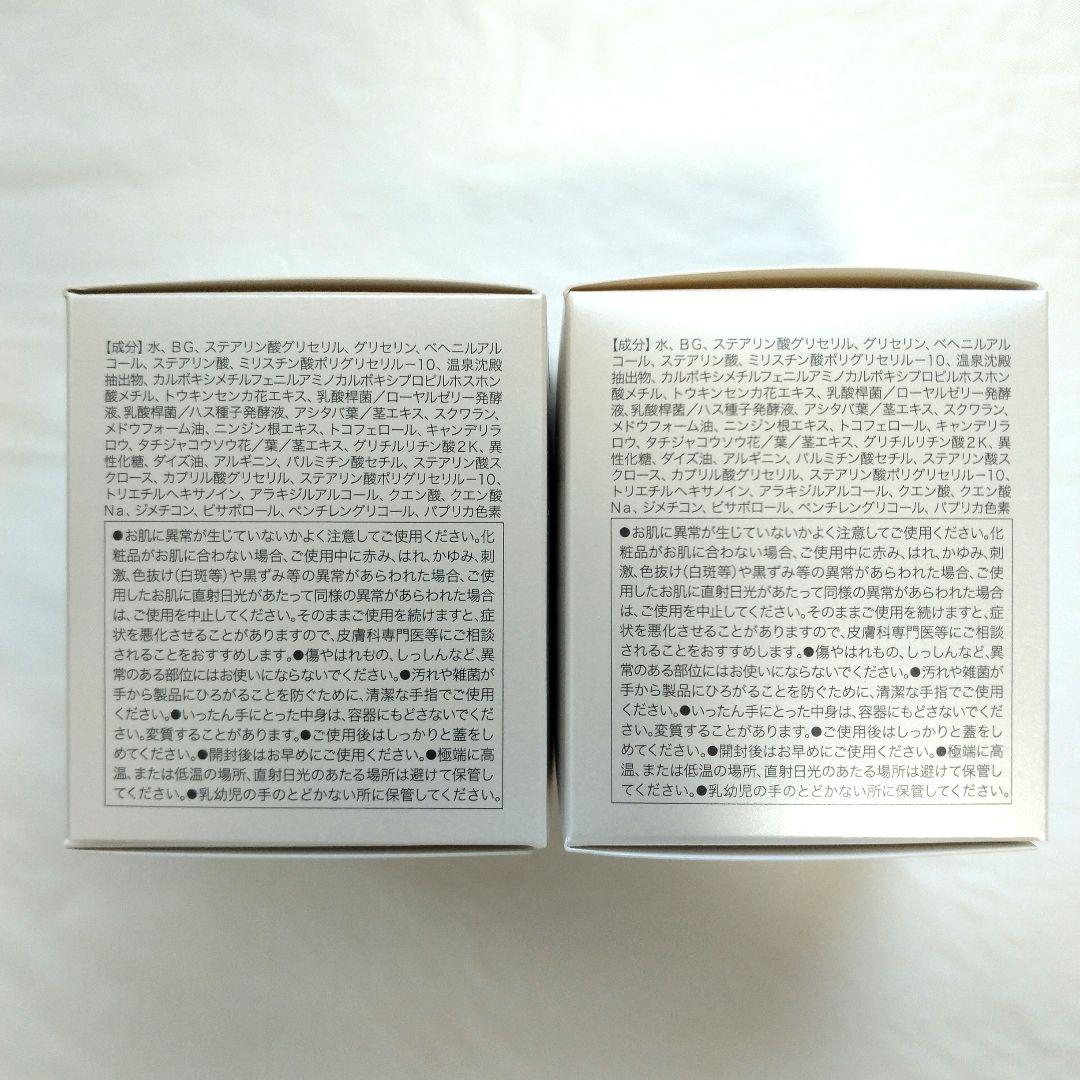 【成分】水、BG、ステアリン酸グリセリル、グリセリン、ベヘニルアル
コール、ステアリン酸、ミリスチン酸ポリグリセリル-10、温泉沈殿
抽出物、カルボキシメチルフェニルアミノカルボキシプロピルホスホン
酸メチル、トウキンセンカ花エキス、乳酸桿菌/ローヤルゼリー発酵
液、乳酸桿菌/ハス種子発酵液、アシタバ葉/茎エキス、スクワラン、
メドウフォーム油、ニンジン根エキス、トコフェロール、キャンデリラ
ロウ、タチジャコウソウ花/葉/茎エキス、グリチルリチン酸2K、異
性化糖、ダイズ油、アルギニン、パルミチン酸セチル、ステアリン酸ス
クロース、カプリル酸グリセリル、ステアリン酸ポリグリセリル-10、
トリエチルヘキサノイン、アラキジルアルコール、クエン酸、クエン酸
Na、ジメチコン、ビサボロール、ペンチレングリコール、パプリカ色素
●お肌に異常が生じていないかよく注意してご使用ください。化
粧品がお肌に合わない場合、ご使用中に赤み、はれ、かゆみ、刺
激、色抜け(白斑等)や黒ずみ等の異常があらわれた場合、ご使
用したお肌に直射日光があたって同様の異常があらわれた場合
は、ご使用を中止してください。そのままご使用を続けますと、症
状を悪化させることがありますので、皮膚科専門医等にご相談
されることをおすすめします。●傷やはれもの、しっしんなど、異
常のある部位にはお使いにならないでください。●汚れや雑菌が
手から製品にひろがることを防ぐために、清潔な手指でご使用
ください。●いったん手にとった中身は、容器にもどさないでくだ
さい。変質することがあります。●ご使用後はしっかりと蓋をし
めてください。●開封後はお早めにご使用ください。●極端に高
温、または低温の場所、直射日光のあたる場所は避けて保管し
てください。●乳幼児の手のとどかない所に保管してください。
【成分】水、BG、ステアリン酸グリセリル、グリセリン、ベヘニルアル
コール、ステアリン酸、ミリスチン酸ポリグリセリル-10、温泉沈殿
抽出物、カルボキシメチルフェニルアミノカルボキシプロピルホスホン
酸メチル、トウキンセンカ花エキス、乳酸桿菌/ローヤルゼリー発酵
液、乳酸桿菌/ハス種子発酵液、アシタバ葉/茎エキス、スクワラン、
メドウフォーム油、ニンジン根エキス、トコフェロール、キャンデリラ
ロウ、タチジャコウソウ花/葉/茎エキス、グリチルリチン酸2K、異
性化糖、ダイズ油、アルギニン、パルミチン酸セチル、ステアリン酸ス
クロース、カプリル酸グリセリル、ステアリン酸ポリグリセリル-10、
トリエチルヘキサノイン、アラキジルアルコール、クエン酸、クエン酸
Na、ジメチコン、ビサボロール、ペンチレングリコール、パプリカ色素
●お肌に異常が生じていないかよく注意してご使用ください。化
粧品がお肌に合わない場合、ご使用中に赤み、はれ、かゆみ、刺
激、色抜け(白斑等)や黒ずみ等の異常があらわれた場合、ご使
用したお肌に直射日光があたって同様の異常があらわれた場合
は、ご使用を中止してください。そのままご使用を続けますと、症
状を悪化させることがありますので、皮膚科専門医等にご相談
されることをおすすめします。●傷やはれもの、しっしんなど、異
常のある部位にはお使いにならないでください。●汚れや雑菌が
手から製品にひろがることを防ぐために、清潔な手指でご使用
ください。●いったん手にとった中身は、容器にもどさないでくだ
さい。変質することがあります。●ご使用後はしっかりと蓋をし
めてください。●開封後はお早めにご使用ください。●極端に高
温、または低温の場所、直射日光のあたる場所は避けて保管し
てください。●乳幼児の手のとどかない所に保管してください。